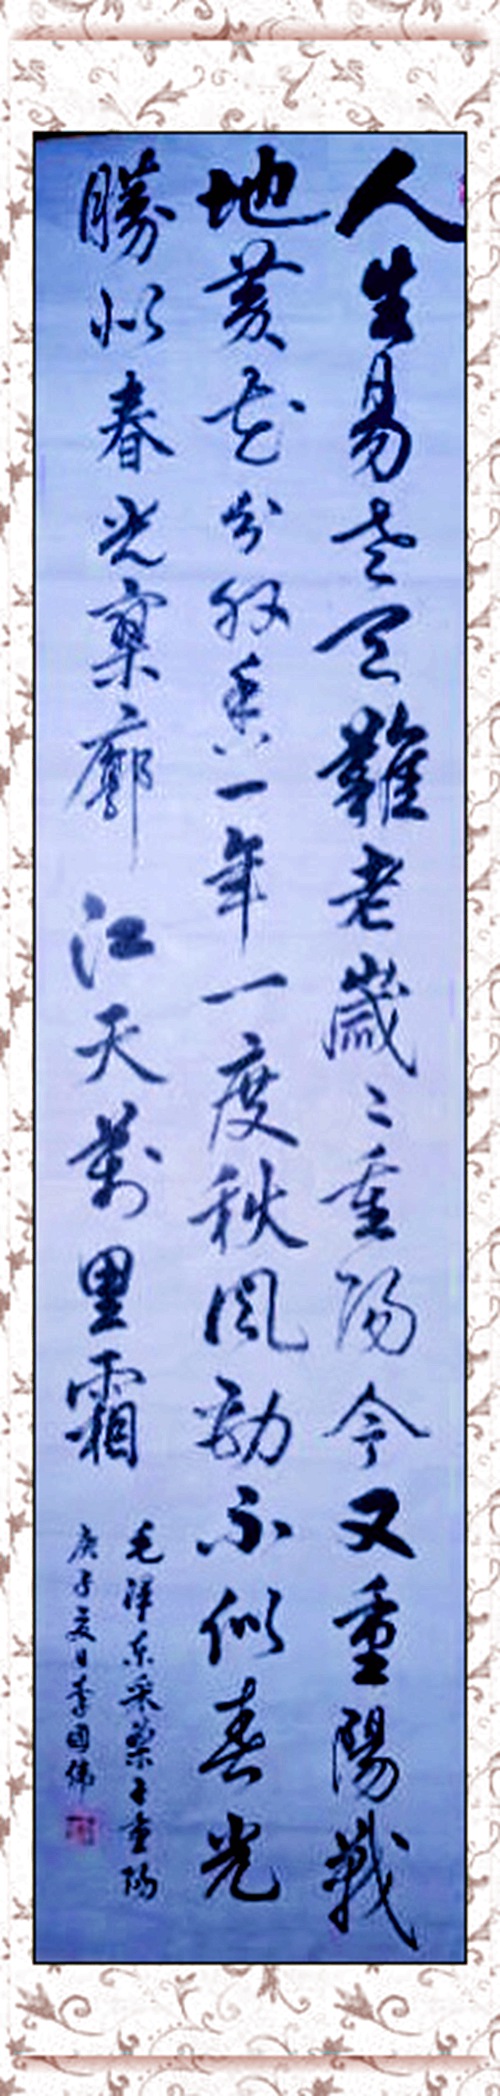 人生易老天難老歲〻重陽今又重陽戰
地黄花分外香一年一度秋風勁不似春光
勝似春光寥廓江天萬里霜
毛澤东采桑子重陽
庚子夏日李國偉